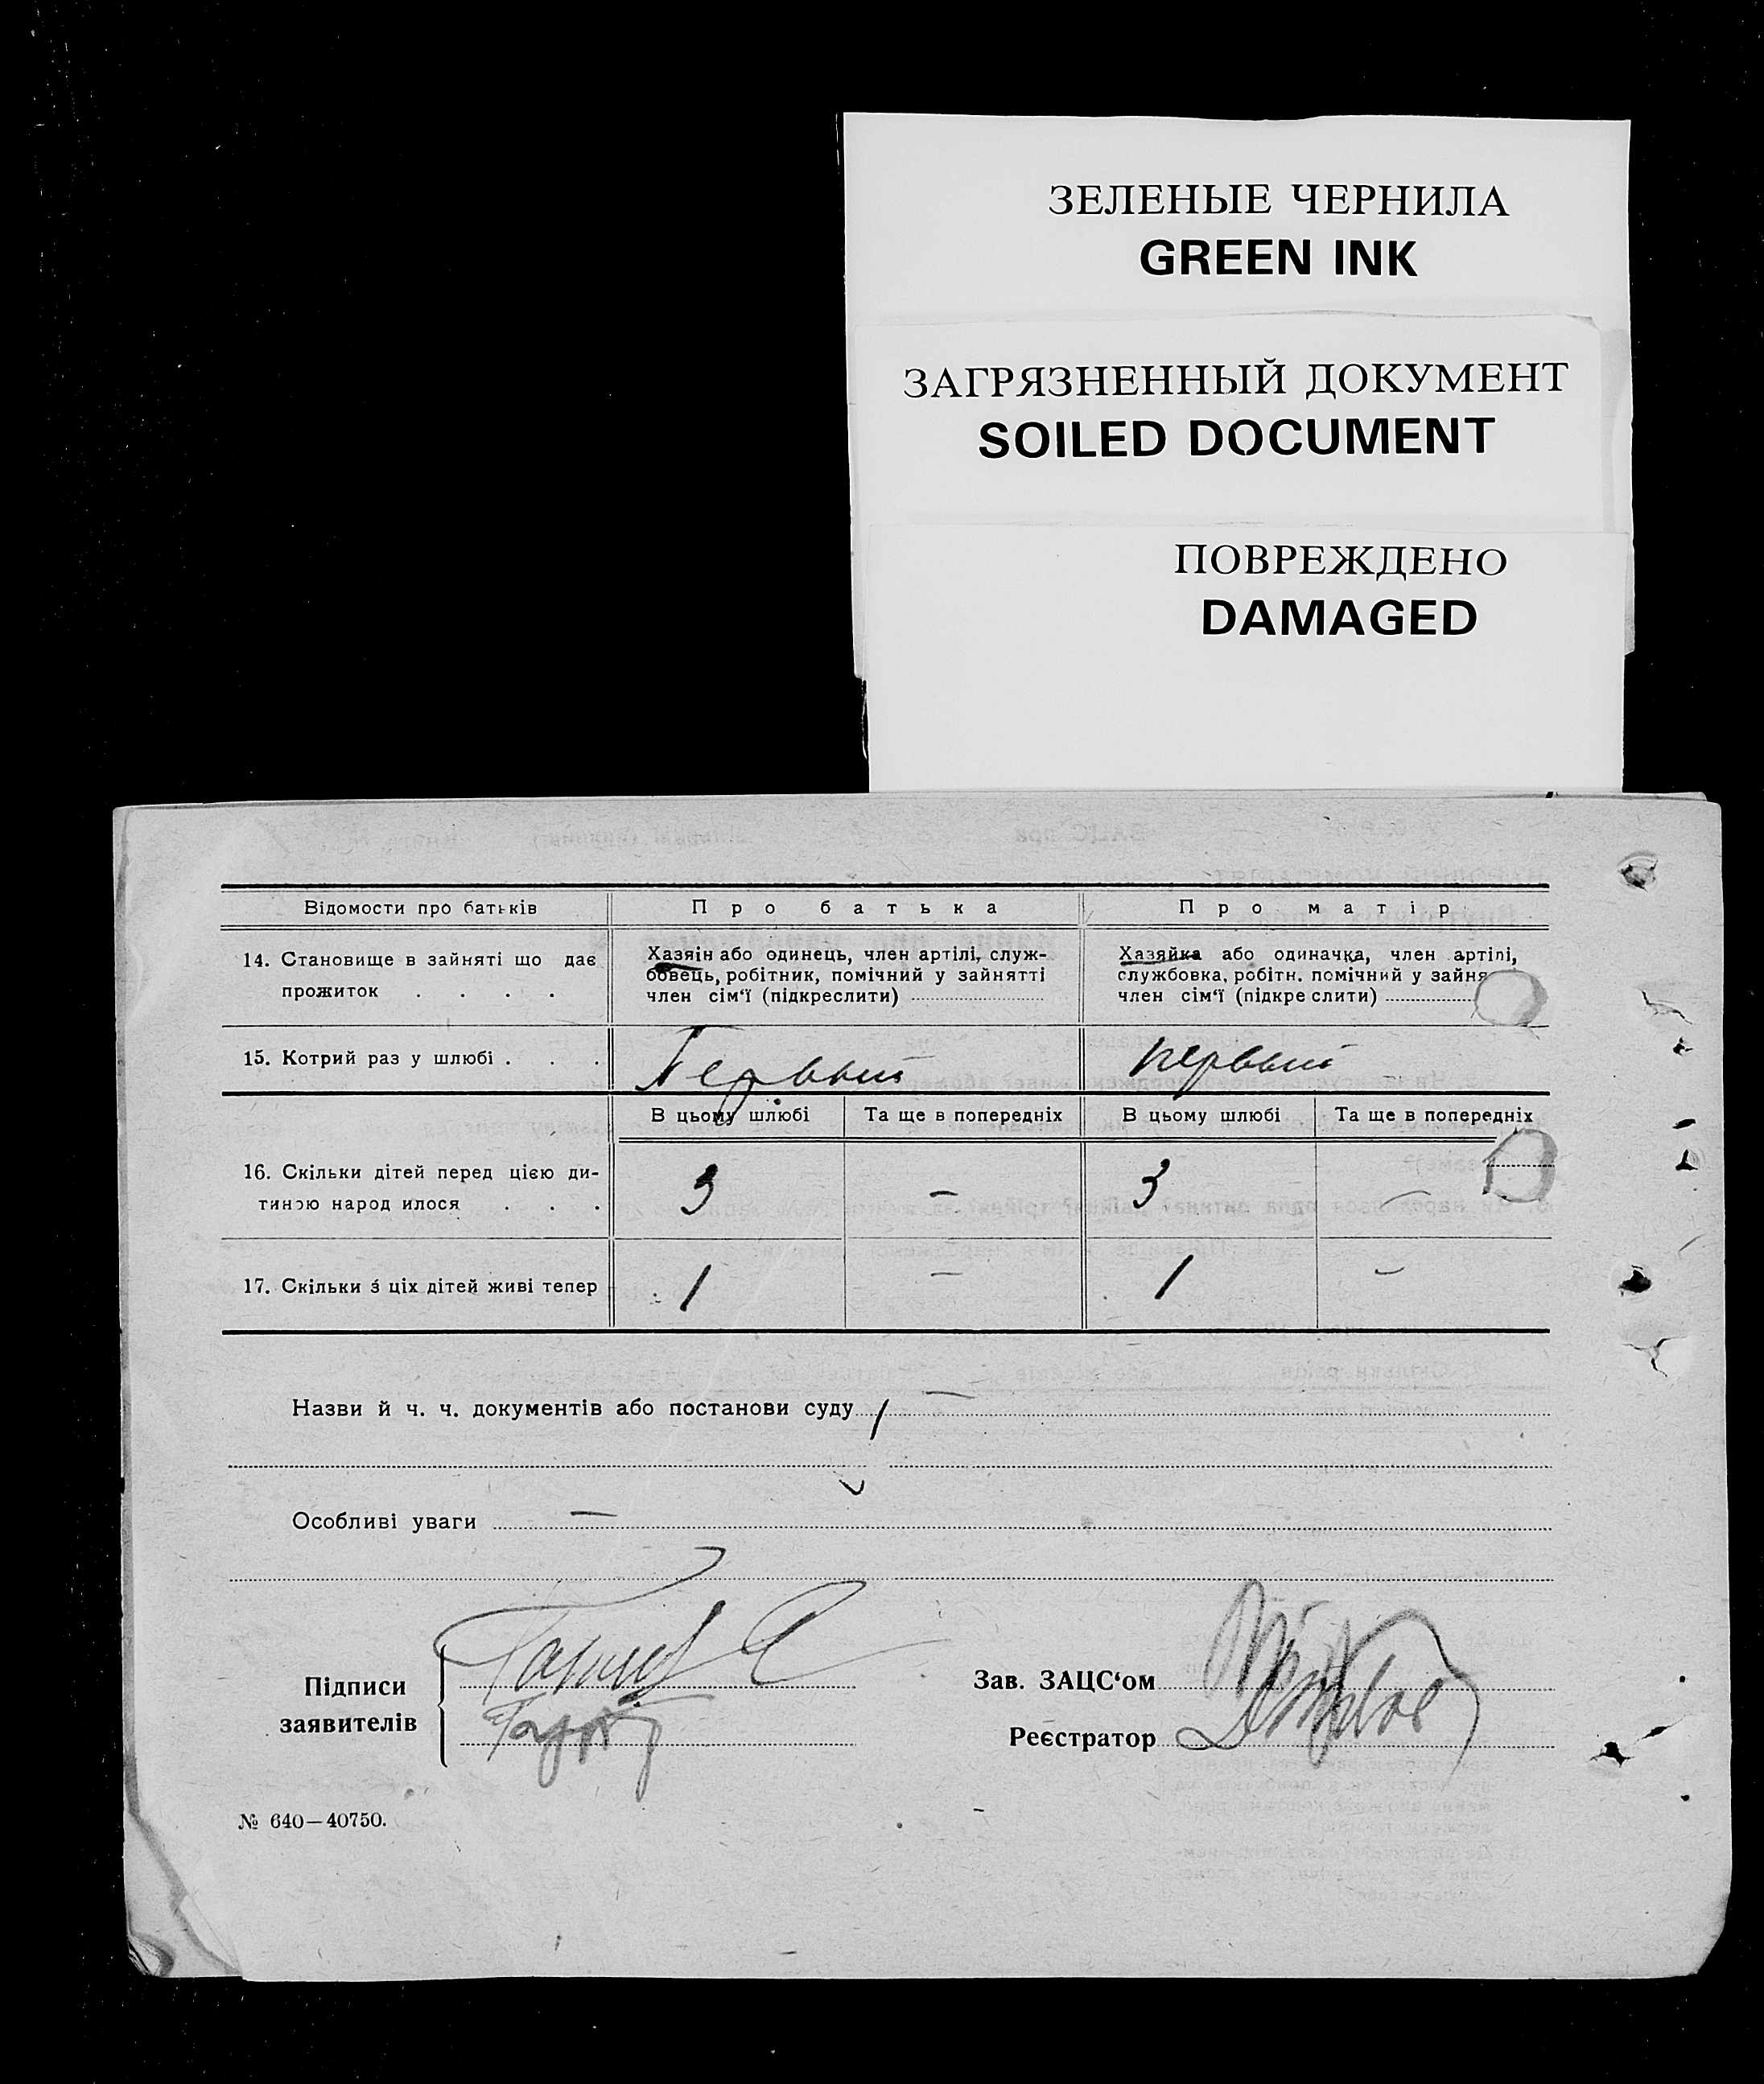 ЗЕЛЕНЫЕ ЧЕРНИЛА
GREEN INK
ЗАГРЯЗНЕННЫЙ ДОКУМЕНТ
SOILED DOCUMENT
ПОВРЕЖДЕНО
DAMAGED
Відомости про батьків Про батька Про матір
14. Становище в зайняті що дає
прожиток . . . .
Хазяін або одинець, член артілі, служ-
бовець, робітник, помічний у зайнятті
член сім‘ї (підкреслити)
Хазяйка або одиначка, член артілі,
службовка, робітн. помічний у зайня
член сім‘ї (підкреслити)
15. Котрий раз у шлюбі . . . Первый первый
В цьому шлюбі Та ще в попередніх В цьому шлюбі Та ще в попередніх
16. Скільки дітей перед цією ди-
тиною народилося . . . 3 – 3 –
17. Скільки з ціх дітей живі тепер 1 – 1 –
Назви й ч. ч. документів або постанови суду –
Особливі уваги –
Підписи
заявителів
Зав. ЗАЦС‘ом
Реєстратор
№ 640—40750.